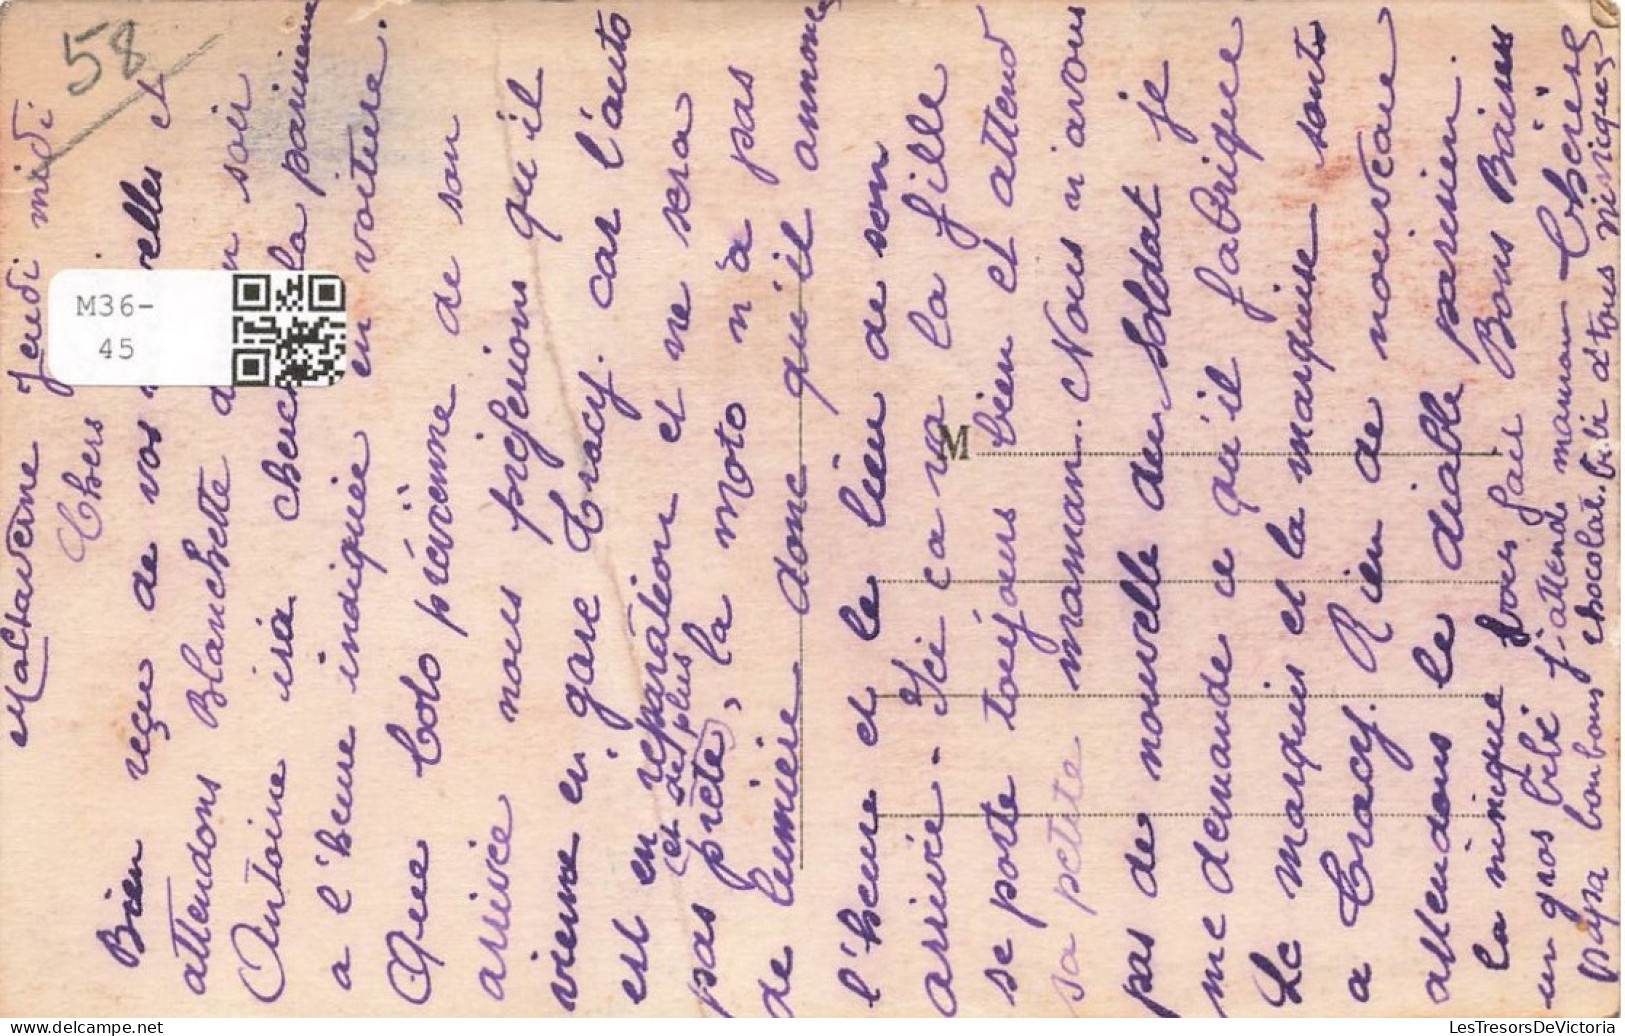 58
Maltaverne Jeudi midi
Chers
Bien reçu de vos nouvelles et
attendons Blanchette soir
Antoine ira cherch la parisienne
a l'heure indiquée en voiture.
Que Coco prévienne de son
arrivée nous préférions qu'il
vienne en gare Tracy. car l'auto
est en réparation et ne sera
(et de plus
pas prête), la moto n'a pas
de lumière donc qu'il annonce
l'heure et le lieu de son
arrivée - Ici ca va la fille
se porte toujours bien et attend
sa petite maman. Nous n'avons
pas de nouvelle du soldat je
me demande ce qu'il fabrique
Le marquis et la marquise sont
a Tracy. Rien de nouveau
attendons le diable parisien.
la nique vous fait Bons Baisers
un gros bibi j'attends maman Chérie
papa bonbons chocolat. bibi a tous
M
M36-
45
LesTresorsDeVictoria